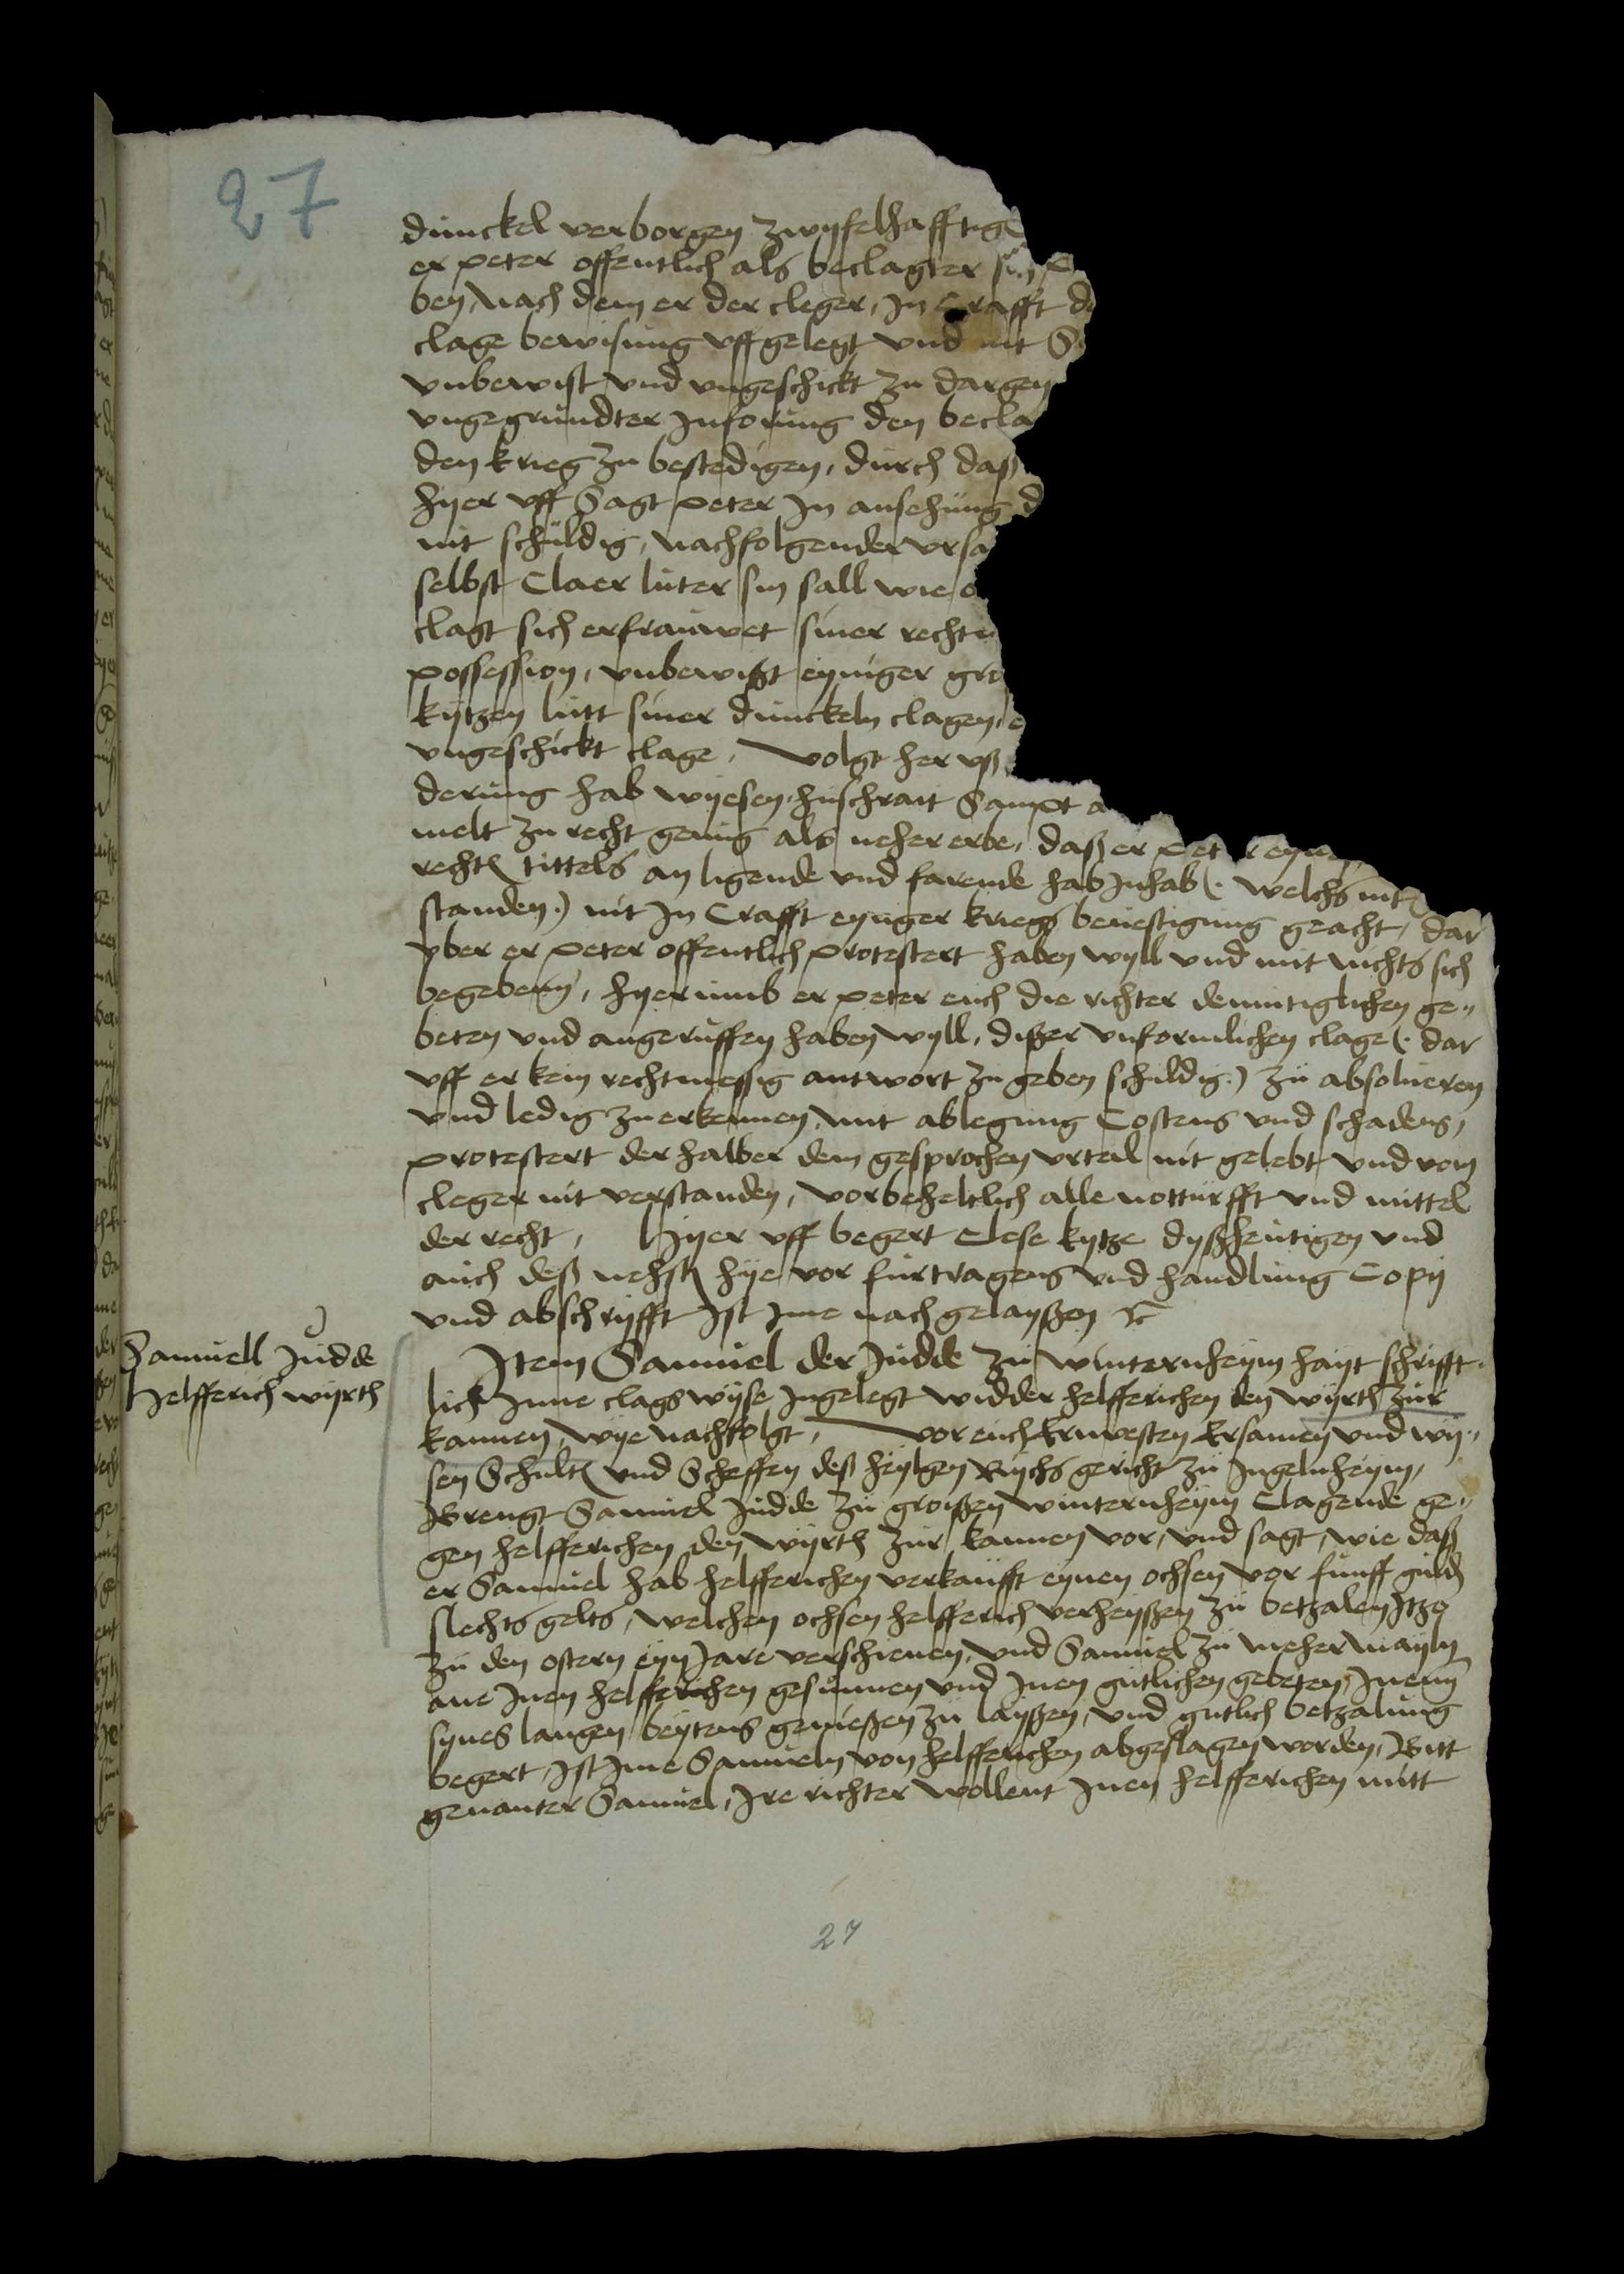 27
dünckel verborgen zwyfelhafftig
er peter offentlich als beclagter sin
ben, Nach dem er der cleger, In Crafft d
clage bewisung uffgelegt und nit
unbewist und ungeschickt zu dargen
ungegründter Inforung den becla
den krieg zu bestedigen, dürch daß
hyer uff Sagt peter In ansehüng d
nit schüldig, Nachfolgender ursa
selbst Claer lüter sin sall wie
clagt sich erfrauwet siner recht
possession, unbewißt eyniger gro
kytzen lütt siner dünckeln clagen,
ungeschickt clage, volgt her uß
derüng hab wyesen, Sampt a
melt zu recht genüg als neher erbe, daß er pet
recht tittels an ligende und farende hab Inhab (. welchs nit
standen .) nit In Crafft eyniger kriegs bevestigüng geacht, dar
yber er peter offentlich protestert haben wyll und mit nichts sich
begeben, hyerümb er peter euch die richter demütiglichen ge„
beten und angerüffen haben wyll, dißer unformlichen clage (. dar
uff er kein rechtmessig antwort zu geben schüldig .) zü absolvieren
und ledig zuerkennen, mit ablegüng Costens und schadens,
protestert der halber dem gesprochen urteil nit gelebt und vom
cleger nit verstanden, vorbeheltlich alle nottürfft und mittel
der recht, Hyer uff begert Clese kytze dyßheütigen und
auch deß nehst hye vor fürtragens und handlüng Copy
und abschryfft Ist Ime nach gelayßen rc
Samuell Jüdde
Helfferich wyrth
Item Samuel der Jüdde zü winternheym hayt schrifft„
lich Inne clags wyse Ingelegt widder helfferichen den wyrth zür
kannen, wye nachfolgt, vor euch Ernvesten Ersamen und wy„
sen Schult und Scheffen deß heylgen Rychs gericht zü Ingelnheym,
Brengt Samuel Jüdde zü großen winternheym Clagende ge„
gen helfferichen den wyrth zür kannen vor, und sagt, wie daß
er Samuel hab helfferichen verkaüfft eynen ochsen vor fünff güld
slechts gelts, welchen ochsen helfferich verheyßen zü betzalen Itzo
zü den ostern eyn Jare verschienen, und Samuel zü meher mayln
ane Inen helfferichen gesünnen und Inen gütlichen gebeten, Inenn
synes langen beytens genießen zü layßen, und gutlich betzalüng
begert, Ist Ime Samueln von helfferichen abgeslagen worden, Bitt
genanter Samuel, Ire richter wollent Inen helfferichen mitt
27